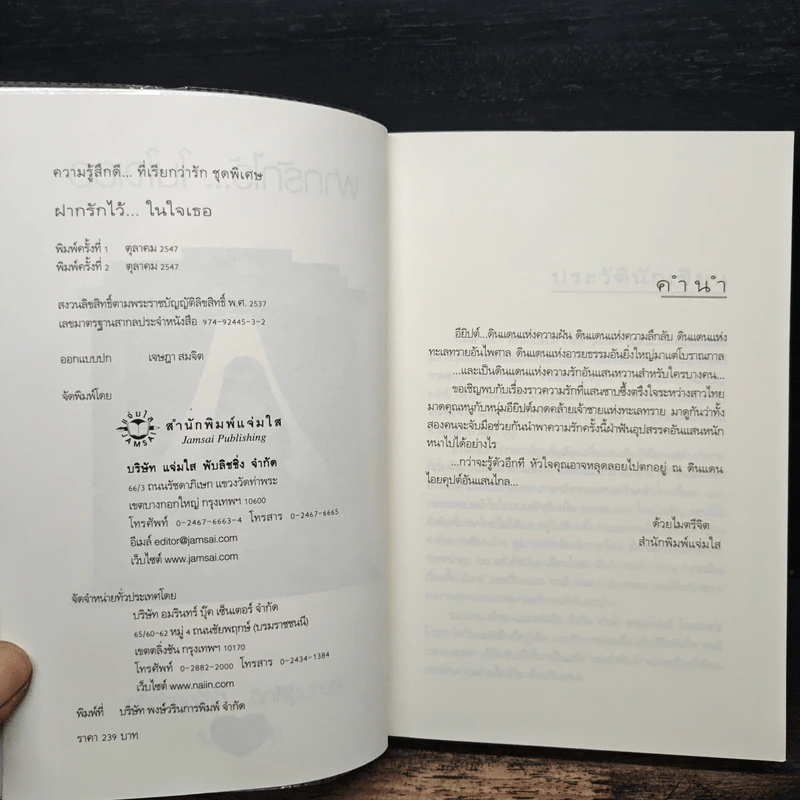 ความรู้สึกดี... ที่เรียกว่ารัก ชุดพิเศษ
ฝากรักไว้... ในใจเธอ
พิมพ์ครั้งที่ 1 ตุลาคม 2547
พิมพ์ครั้งที่ 2 ตุลาคม 2547
สงวนลิขสิทธิ์ตามพระราชบัญญัติลิขสิทธิ์ พ.ศ. 2537
เลขมาตรฐานสากลประจำหนังสือ 974-92445-3-2
ออกแบบปก เจษฎา สมจิต
จัดพิมพ์โดย
แจ่มใส
JAMSAI
สำนักพิมพ์แจ่มใส
Jamsai Publishing
บริษัท แจ่มใส พับลิชชิ่ง จำกัด
66/3 ถนนรัชดาภิเษก แขวงวัดท่าพระ
เขตบางกอกใหญ่ กรุงเทพฯ 10600
โทรศัพท์ 0-2467-6663-4 โทรสาร 0-2467-6665
อีเมล์ editor@jamsai.com
เว็บไซต์ www.jamsai.com
จัดจำหน่ายทั่วประเทศโดย
บริษัท อมรินทร์ บุ๊ค เซ็นเตอร์ จำกัด
65/60-62 หมู่ 4 ถนนชัยพฤกษ์ (บรมราชชนนี)
เขตตลิ่งชัน กรุงเทพฯ 10170
โทรศัพท์ 0-2882-2000 โทรสาร 0-2434-1384
เว็บไซต์ www.naiin.com
พิมพ์ที่ บริษัท พงษ์วรินการพิมพ์ จำกัด
ราคา 239 บาท
คำนำ
อียิปต์...ดินแดนแห่งความฝัน ดินแดนแห่งความลึกลับ ดินแดนแห่ง
ทะเลทรายอันไพศาล ดินแดนแห่งอารยธรรมอันยิ่งใหญ่มาแต่โบราณกาล
...และเป็นดินแดนแห่งความรักอันแสนหวานสำหรับใครบางคน...
ขอเชิญพบกับเรื่องราวความรักที่แสนซาบซึ้งตรึงใจระหว่างสาวไทย
มาดคุณหนูกับหนุ่มอียิปต์มาดคล้ายเจ้าชายแห่งทะเลทราย มาดูกันว่าทั้ง
สองคนจะจับมือช่วยกันนำพาความรักครั้งนี้ฝ่าฟันอุปสรรคอันแสนหนัก
หนาไปได้อย่างไร
...กว่าจะรู้ตัวอีกที หัวใจคุณอาจหลุดลอยไปตกอยู่ ณ ดินแดน
ไอยคุปต์อันแสนไกล...
ด้วยไมตรีจิต
สำนักพิมพ์แจ่มใส